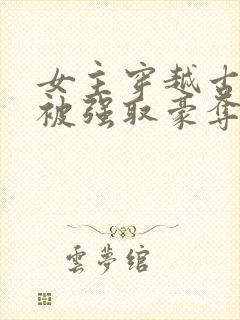 女主穿越古
被强取豪夺
雲夢绾